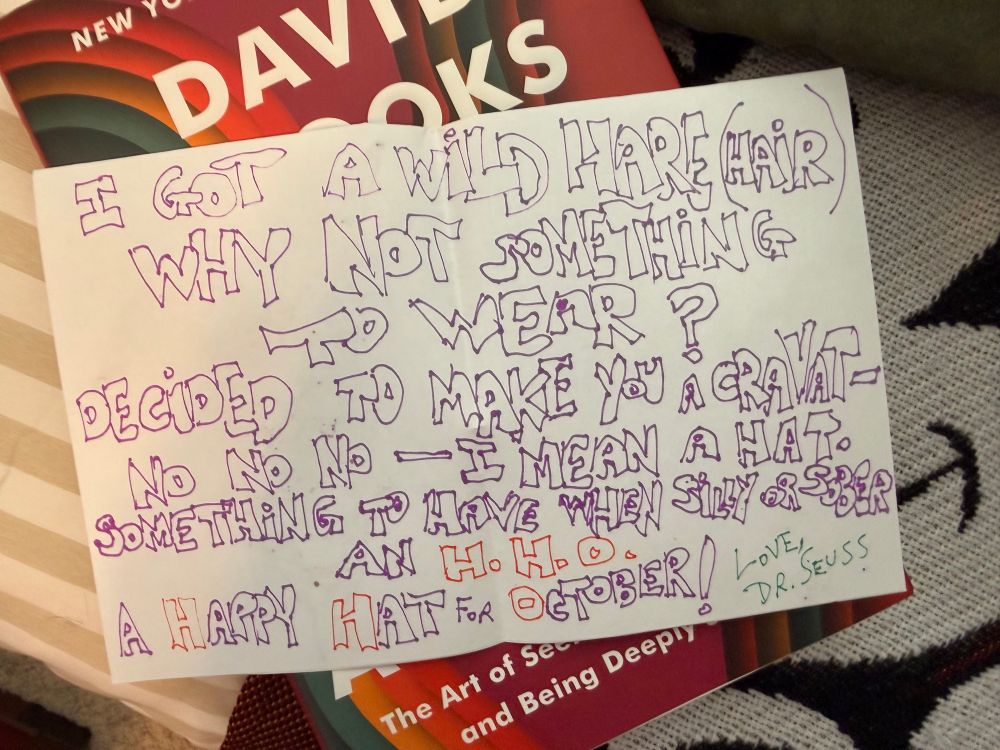 NEW YO
DAVID
OOKS
I GOT A WILD HARE (HAIR)
WHY NOT SOMETHING
TO WEAR?
DECIDED TO MAKE YOU A CRAVAT—
NO NO NO — I MEAN A HAT.
SOMETHING TO HAVE WHEN SILLY OR SOBER
AN H.H.O.
A HAPPY HAT FOR OCTOBER!
LOVE,
DR. SEUSS
The Art of See
and Being Deeply